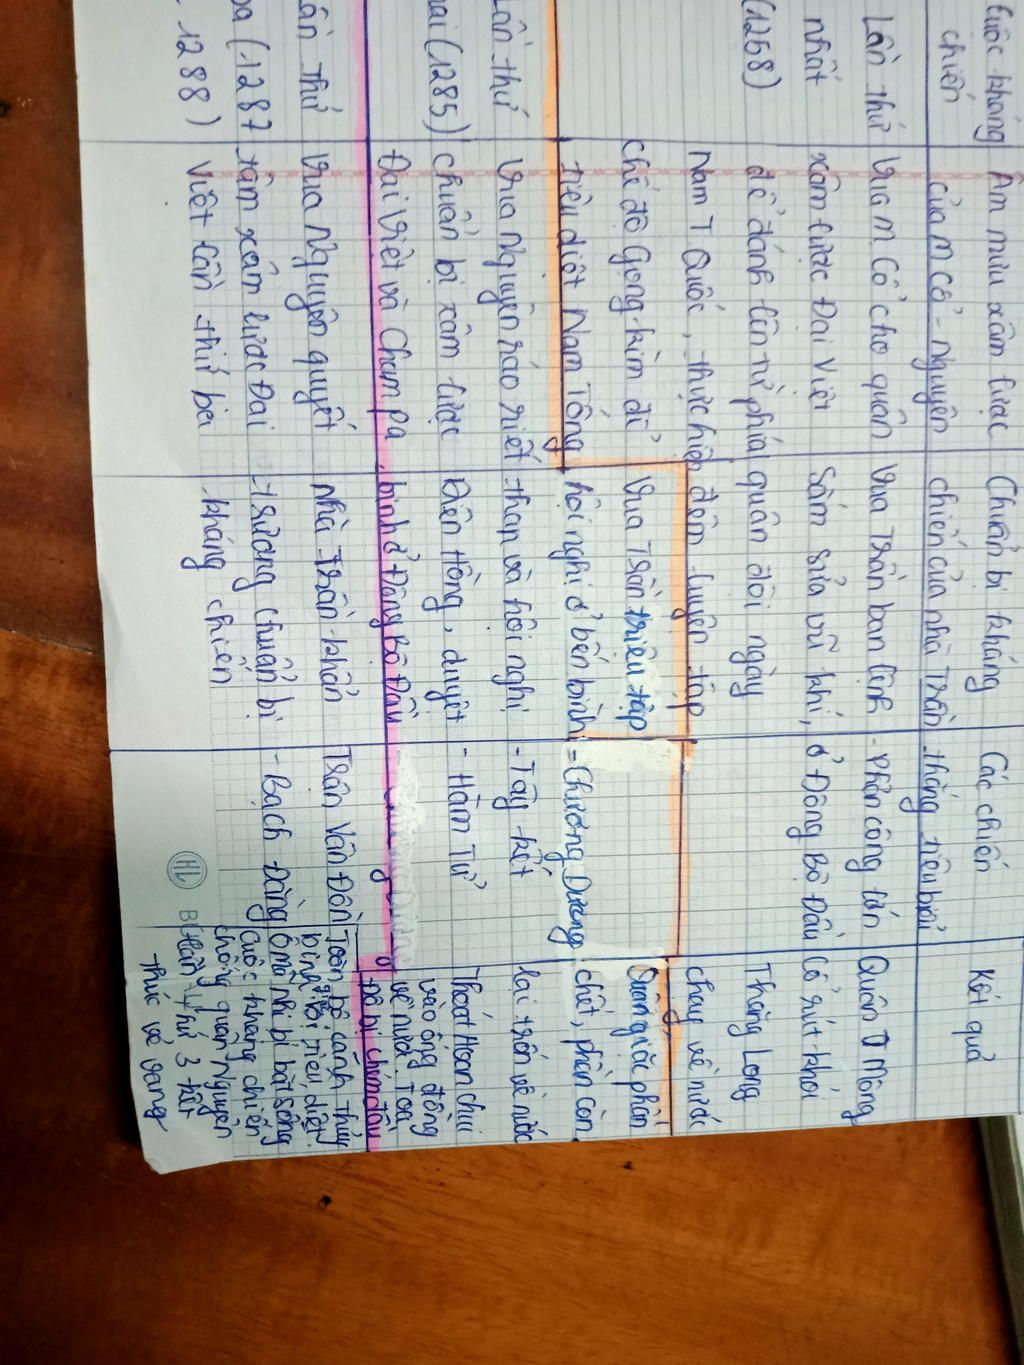 Cuộc kháng
chiến
Âm mưu xâm lược
của M Cổ - Nguyên
Chuẩn bị kháng
chiến của nhà Trần
Các chiến
thắng tiêu biểu
Kết quả
Lần thứ
nhất
(1258)
Vua M Cổ cho quân
xâm lược Đại Việt
để đánh lên từ phía
Nam T Quốc, thực hiện
chế độ Gọng kìm để
tiêu diệt Nam Tống
Vua Trần ban lệnh
Sắm sửa vũ khí,
quân đội ngày
đêm luyện tập
- Phản công lớn
ở Đông Bộ Đầu
Quân Mông
Cổ rút khỏi
Thăng Long
chạy về nước
Lần thứ
hai (1285)
Vua Nguyên ráo riết
chuẩn bị xâm lược
Đại Việt và Cham pa
Vua Trần triệu tập
hội nghị ở bến bình
than và hội nghị
Diên Hồng, duyệt
binh ở Đông Bộ Đầu
- Chương Dương
- Tây kết
- Hàm Tử
Quân giặc phần
chết, phần còn
lại trốn về nước
Thoát Hoan chui
vào ống đồng
về nước. Toa
Đô bị chém đầu
ần thứ
ba (1287
1288)
Vua Nguyên quyết
tâm xâm lược Đại
Việt lần thứ ba
Nhà Trần khẩn
trương chuẩn bị
kháng chiến
Trận Vân Đồn
- Bạch Đằng
Toàn bộ cánh thủy
binh bị tiêu diệt.
Ô mã nhi bị bắt sống
Cuộc kháng chiến
chống quân Nguyên
lần thứ 3 kết
thúc vẻ vang